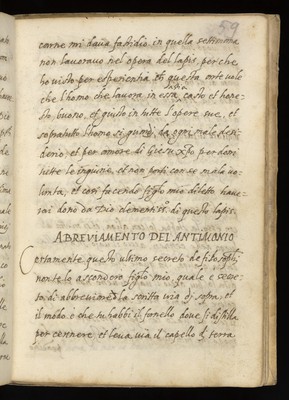 59
carne mi dava fastidio in quella settimana
non lavoravo nel opera del lapis, perche
ho visto per esperientia che questa arte vole
che l'homo che lavora in essa sia casto et hone-
sto, buono, et giusto in tutte l'opere sue, et
sopratutto l'homo si guardi da ogni mal desi-
derio, et per amore di Giesu xpo perdoni
tutte le ingiurie, et non porti con se mala vo-
lunta, et cosi facendo figlio mio diletto have-
rai dono da Dio clementiss.o di questo lapis.
ABREVIAMENTO DEL ANTIMONIO
Certamente questo ultimo secreto de filosophi
non te lo ascondero figlio mio, quale e secre-
to di abbreviare la scritta via di sopra, et
il modo e che tu habbi il fornello dove si distilla
per cennere, et leva via il capello di terra